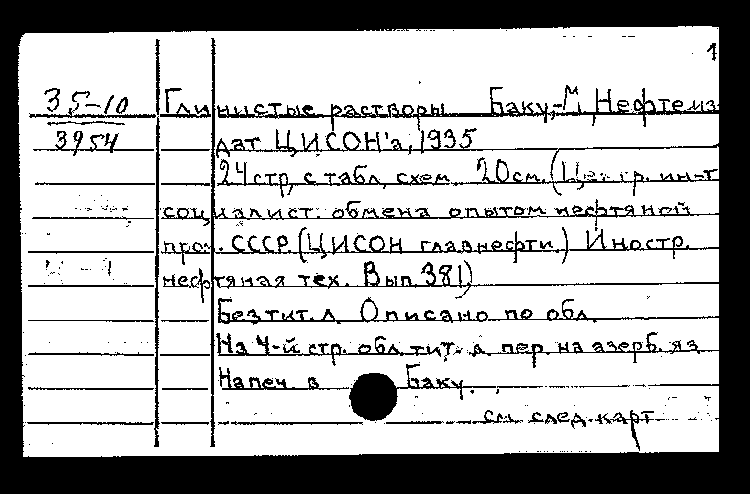 1
35-10 Глинистые растворы Баку,-М, Нефтеиз-
3954 дат ЦИСОН'а, 1935
24 стр, с табл, схем 20 см. (Центр. ин-т
социалист. обмена опытом нефтяной
пром. СССР. (ЦИСОН главнефти.) Иностр.
нефтяная тех. Вып. 381)
Без тит. л Описано по обл.
На 4-й стр. обл. тит. л пер. на азерб. яз
Напеч. в Баку.
см. след. карт